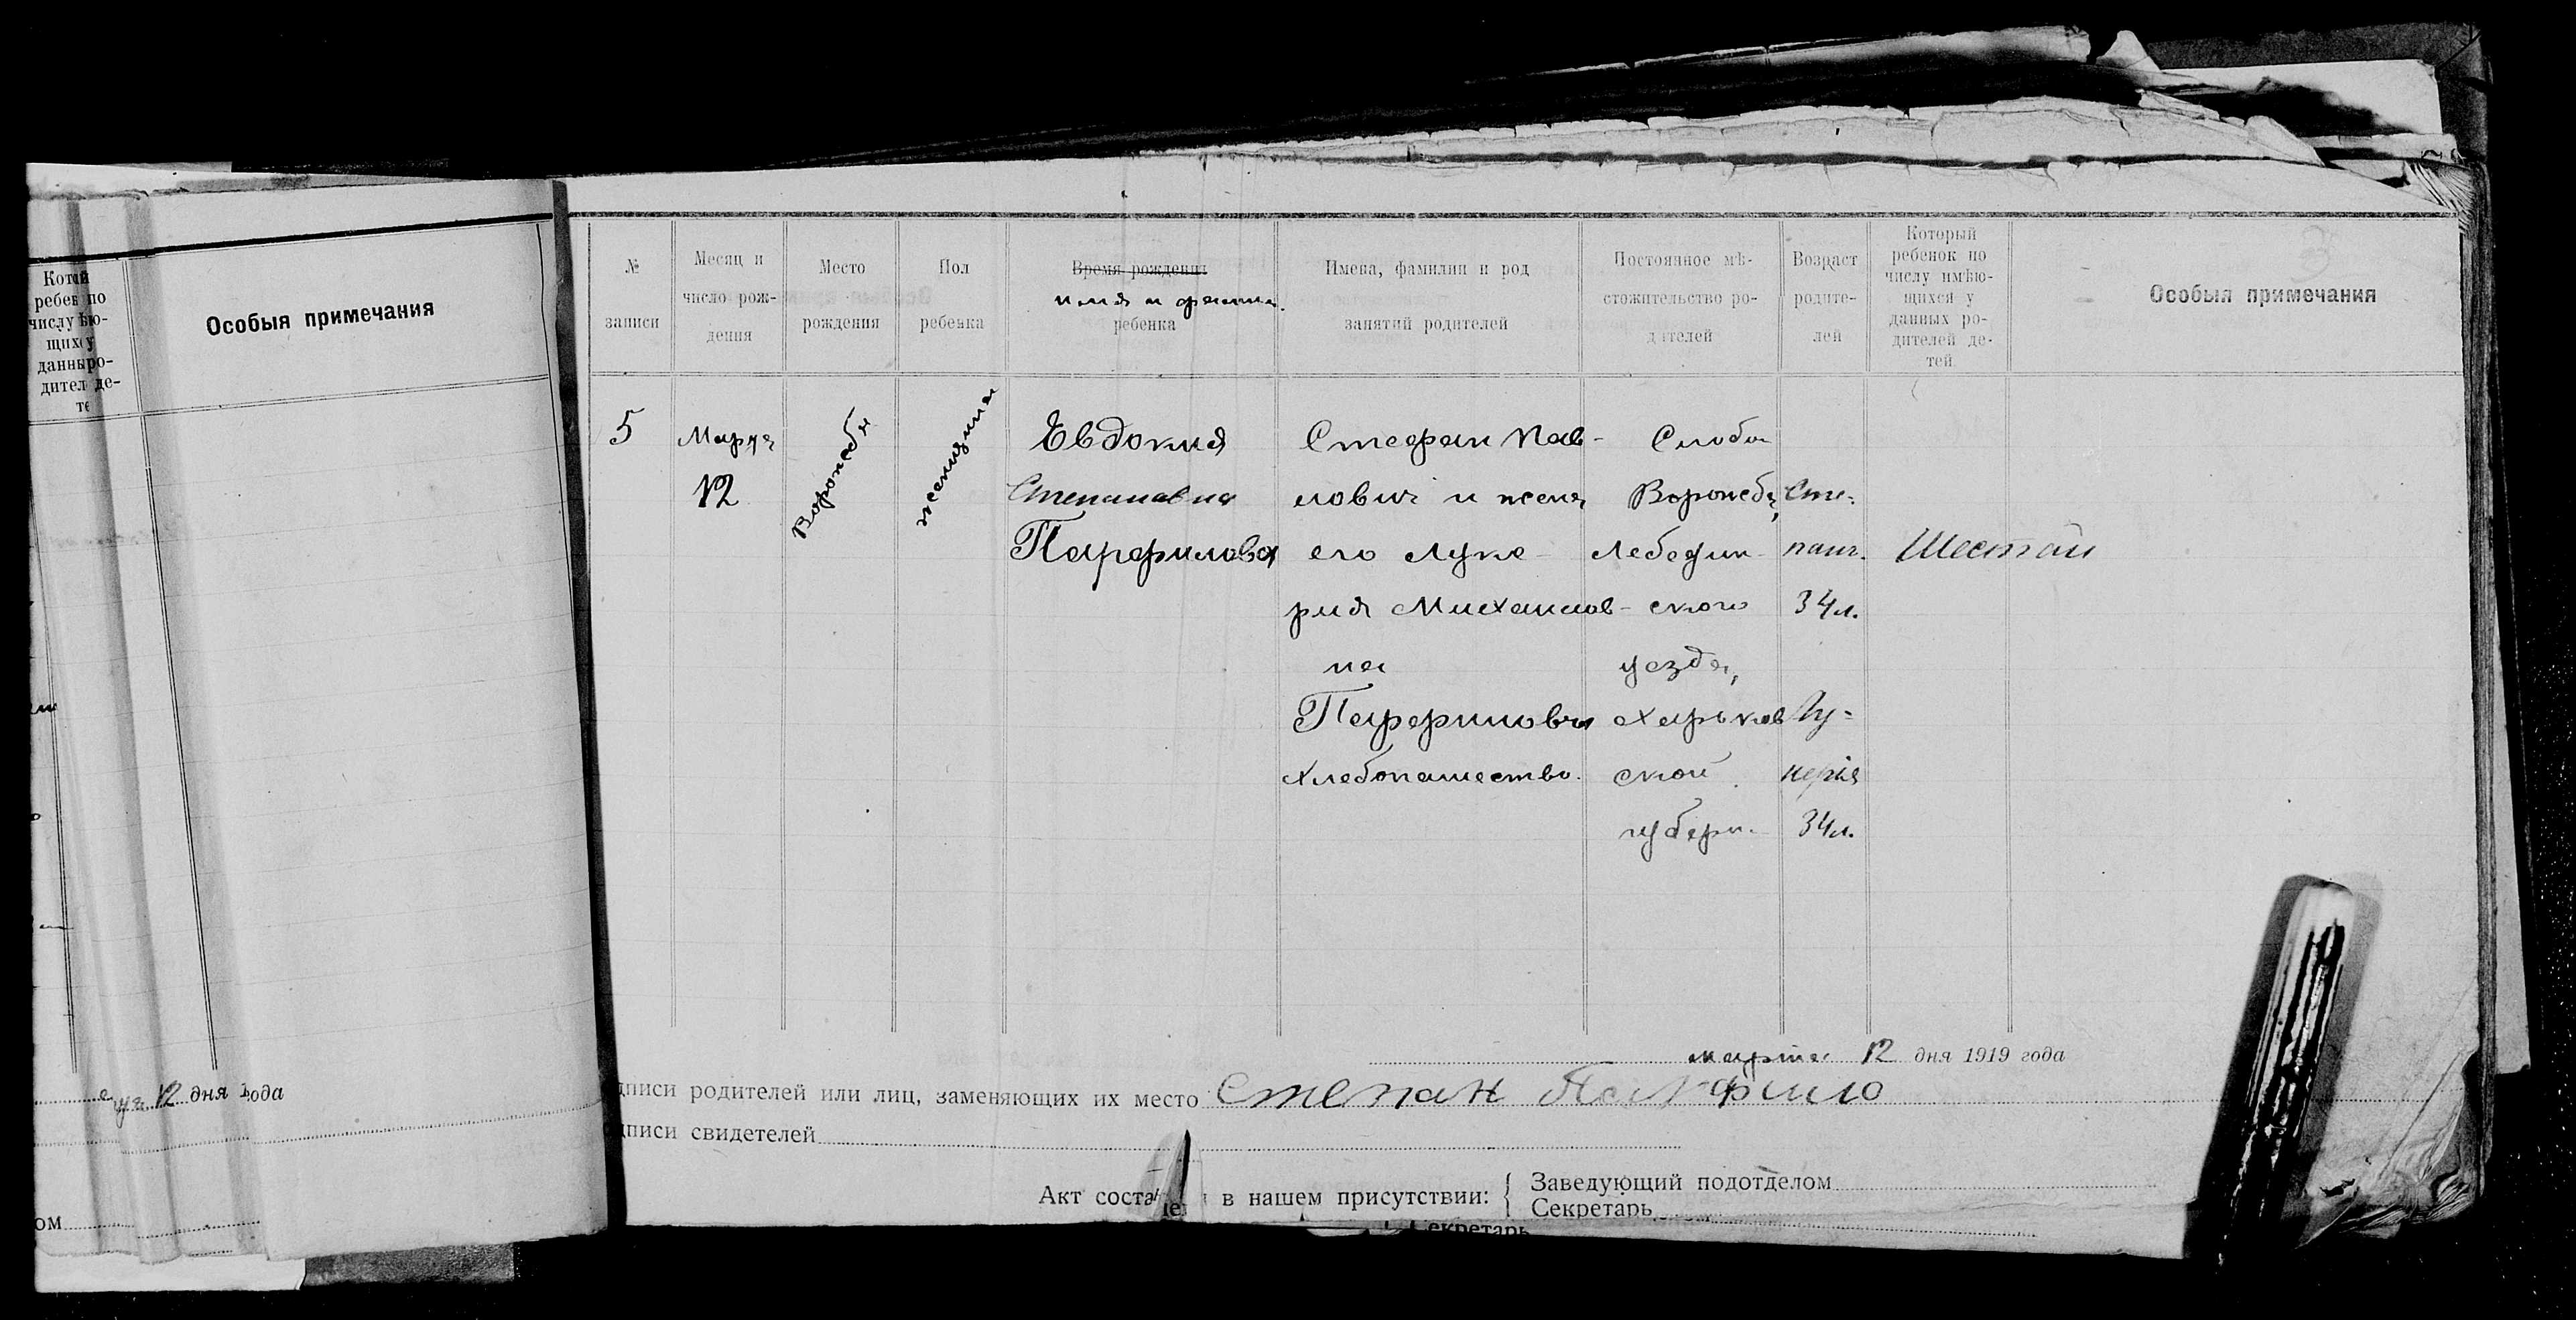 Особыя примечания
12 дня
№ записи
Месяц и число рождения
Место рождения
Пол ребенка
Время рождения
имя и фамил.
ребенка
Имена, фамилии и род занятий родителей
Постоянное мѣстожительство родителей
Возраст родителей
Который ребенок по числу имѣющихся у данных родителей детей
Особыя примечания
5
Марта
12
Ворожба
женщина
Евдокия
Степановна
Парфилова
Стефан Пав-
лович и жена
его Луке-
рия Михаилов-
на
Парфиловы
Хлебопашество.
Слобо
Ворожба,
Лебедин-
ского
уезда,
Харьков
ской
губерн.
Сте-
пан.
34 л.
Лу-
керiя
34 л.
Шестой
марта 12 дня 1919 года
родителей или лиц, заменяющих их место Степан Парфило
свидетелей
Акт в нашем присутствии:
Заведующий подотделом
Секретарь